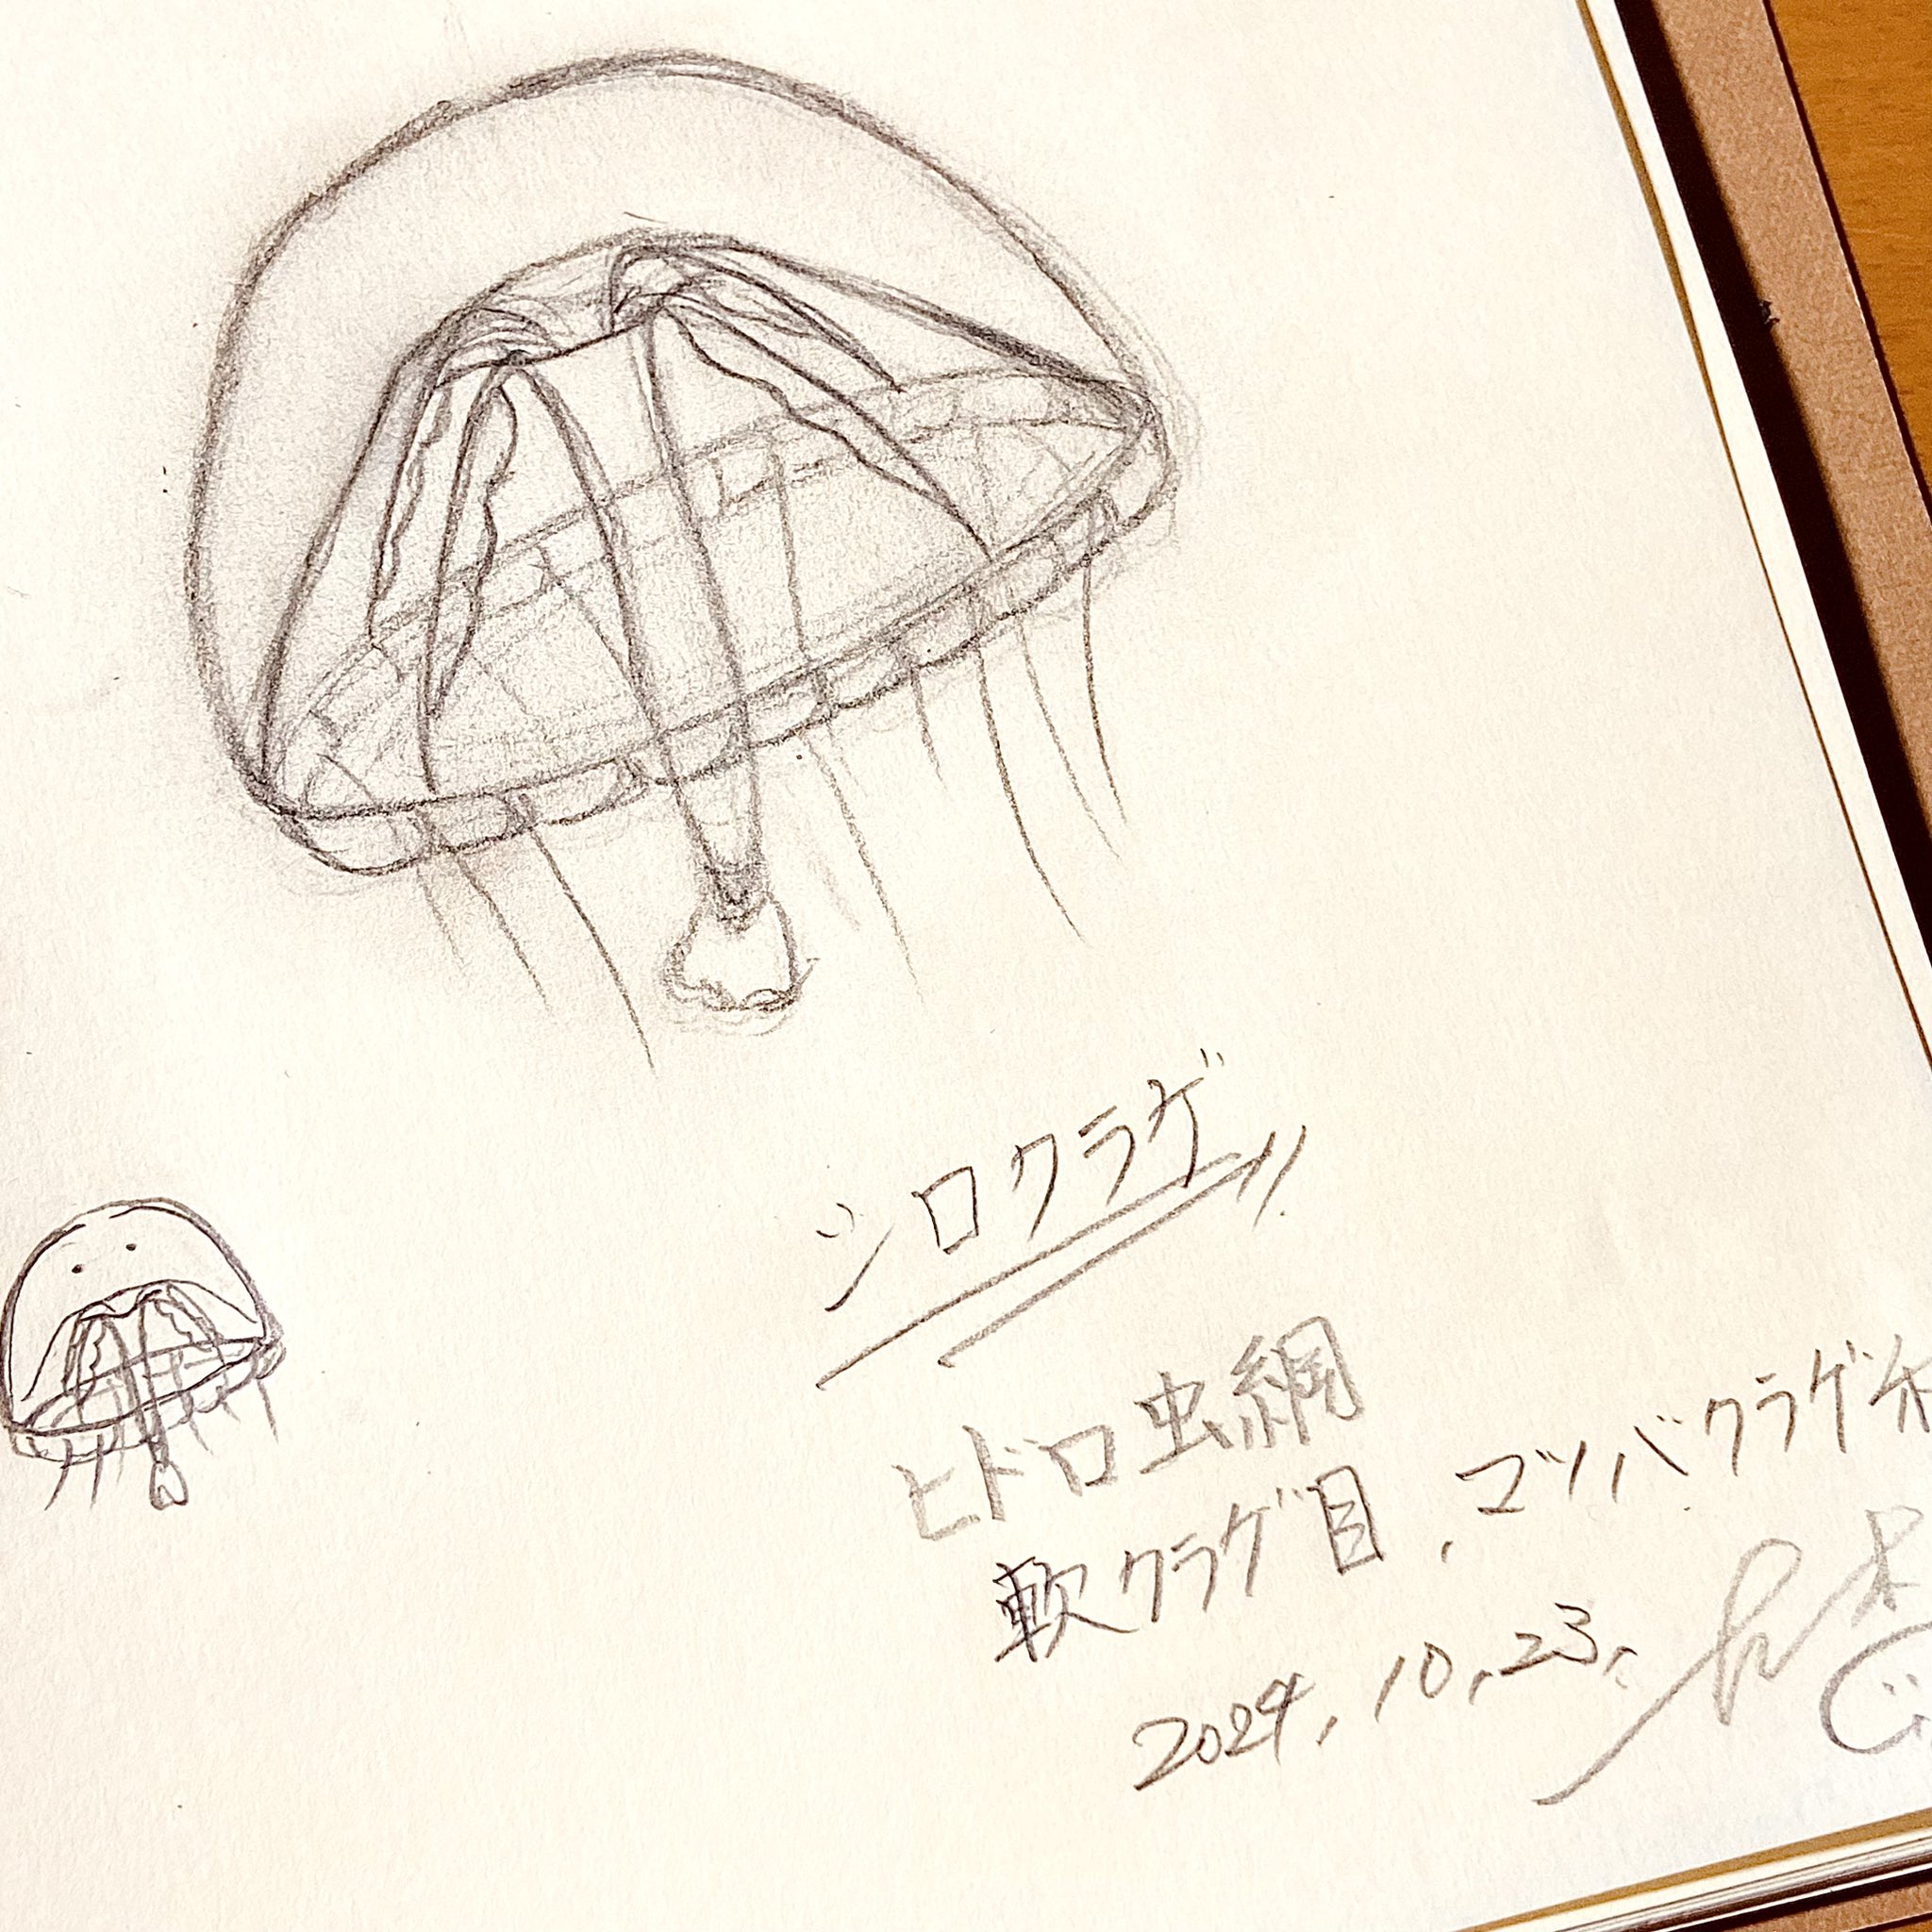 シロクラゲ
ヒドロ虫網
軟クラゲ目、マツバクラゲ科
2024.10.23.